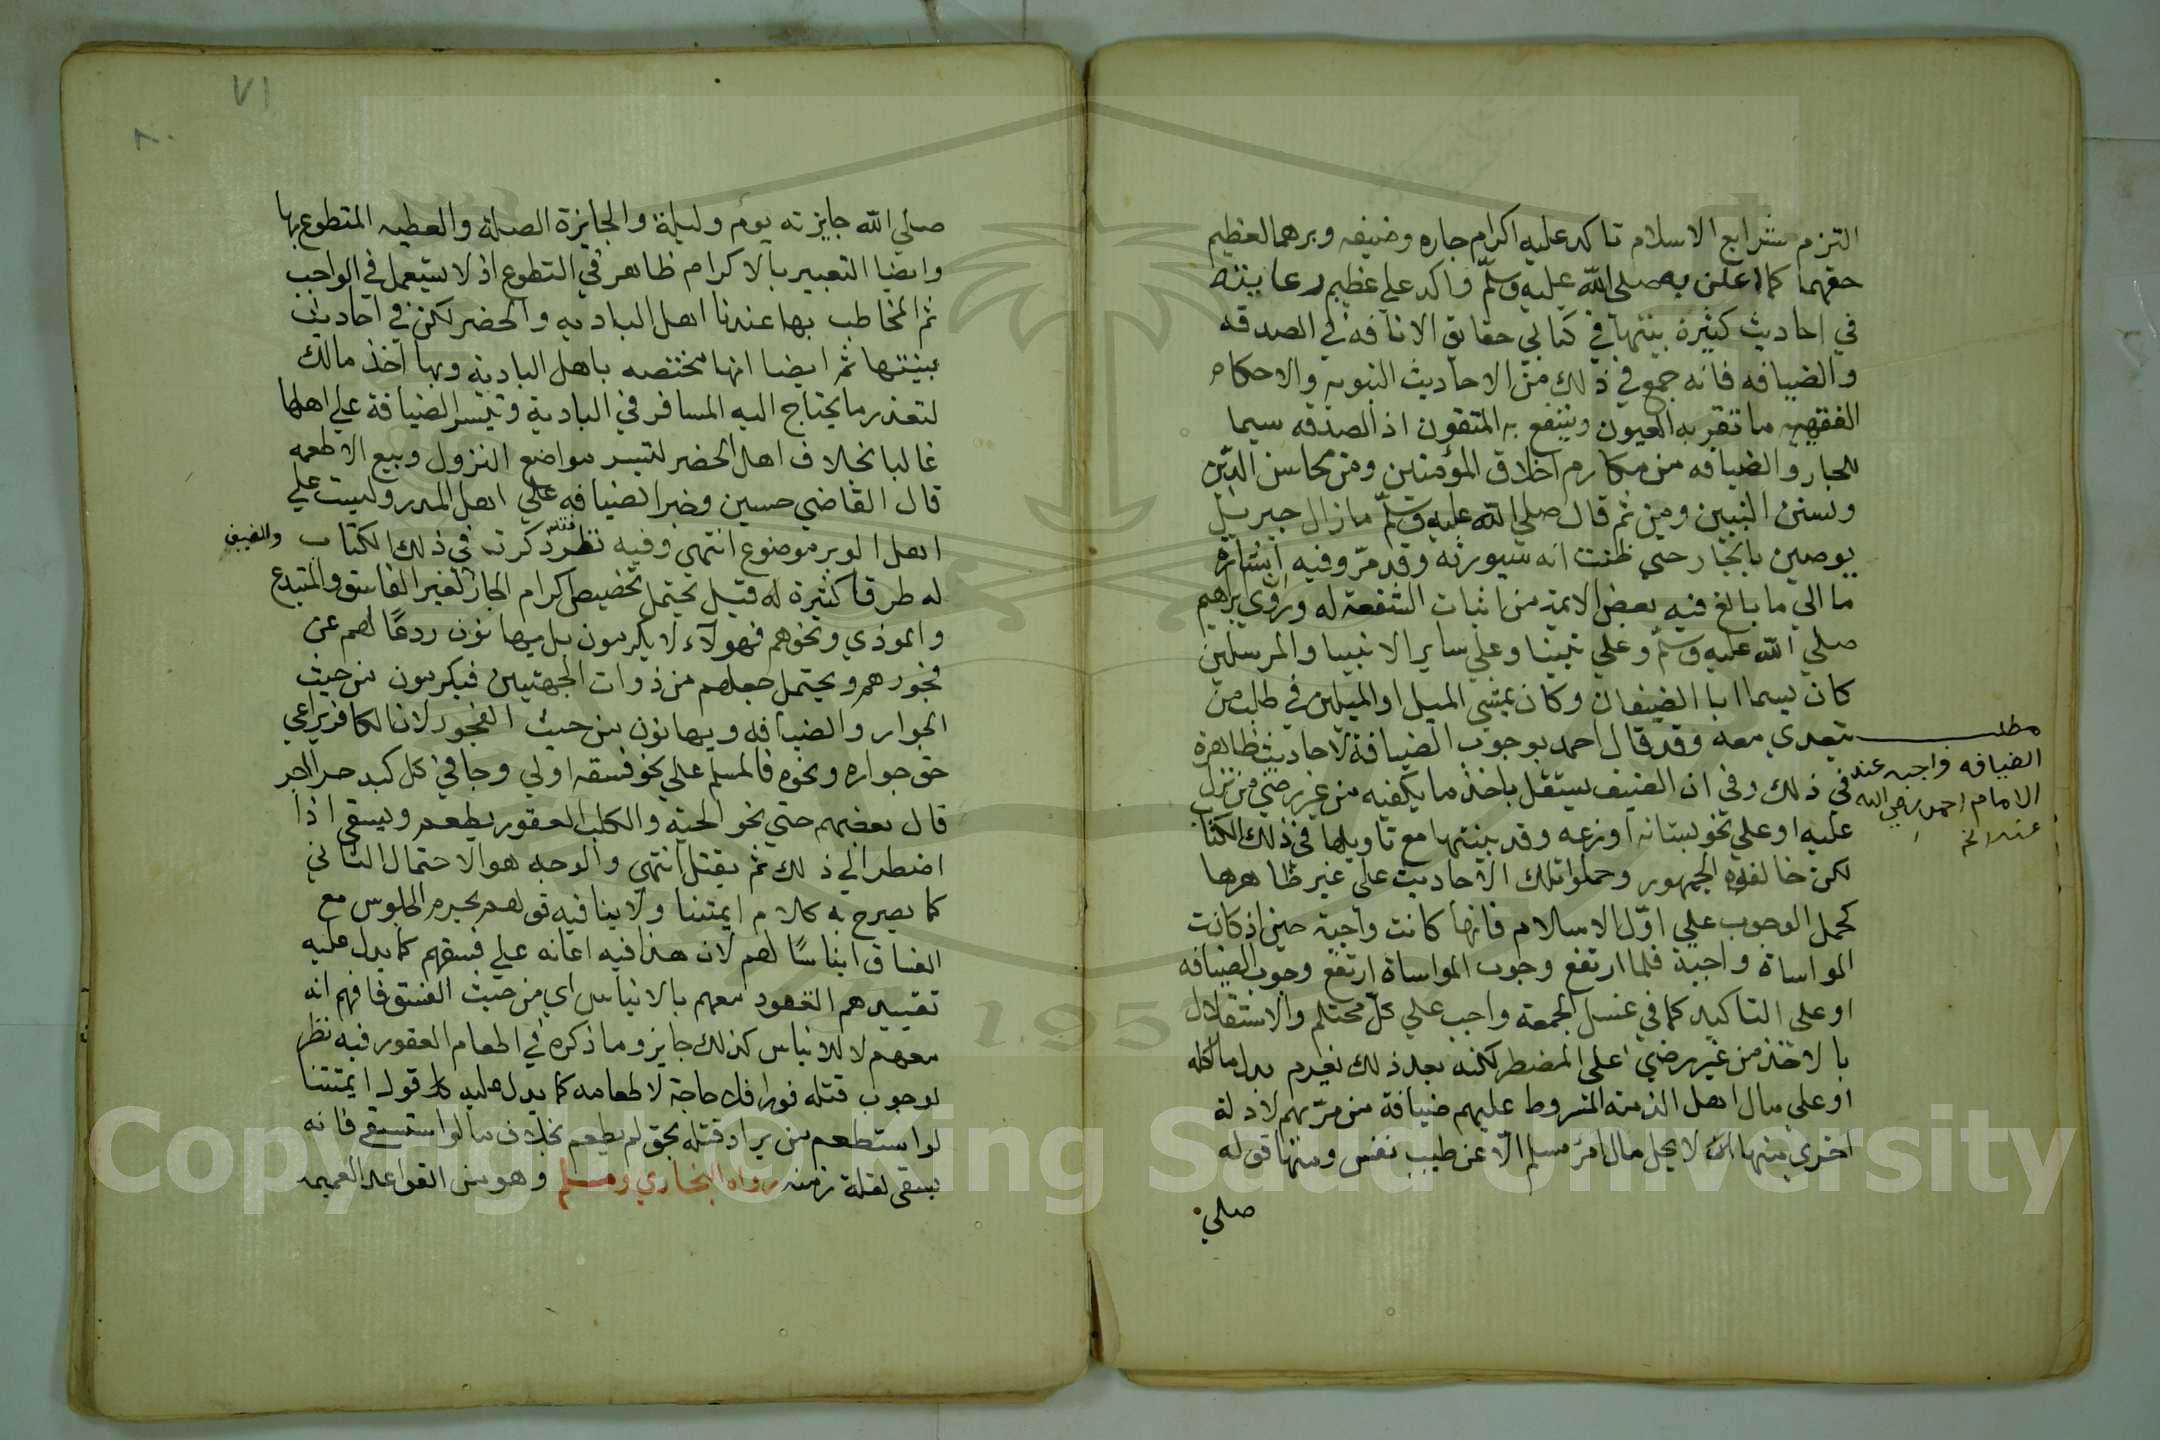 التزم شرايع الاسلام تاكد عليه اكرام جاره وضيفه وبرهما لعظيم
حقهما كما اعلن به صلى الله عليه وسلم واكد على عظيم رعايته
في احاديث كثيرة بينتها في كتابي حقايق الانافه في الصدقه
والضيافه فانه جمع في ذلك من الاحاديث النبويه والاحكام
الفقهيه ما تقر به العيون وينتفع به المتقون اذ الصدقه سيما
للجار والضيافه من مكارم اخلاق المؤمنين ومن محاسن الدين
وسنن النبيين ومن ثم قال صلي الله عليه وسلم مازال جبريل
يوصين بالجار حتي ظننت انه سيورثه وقد مر وفيه اشاره
ما الي ما بالغ فيه بعض الايمة من اثبات الشفعة له وابراهيم
صلي الله عليه وسلم وعلي نبينا وعلي ساير الانبيا والمرسلين
كان يسما ابا الضيفان وكان يمشي الميل او الميلين في طلب من
يتغدي معه وقد قال احمد بوجوب الضيافة لاحاديث ظاهرة
في ذلك وفي ان الضيف يستقل باخذ ما يكفيه من غير رضي من نزل
عليه او علي نحو بستانه او زرعه وقد بينتها مع تاويلها في ذلك الكتاب
لكن خالفوه الجمهور وحملوا تلك الاحاديث علي غير ظاهرها
كحمل الوجوب علي اول الاسلام فانها كانت واجبة حين اذ كانت
المواساة واجبة فلما ارتفع وجوب المواساة ارتفع وجوب الضيافه
او علي التاكيد كما في غسل الجمعة واجب علي كل محتلم والاستقلال
بالاخذ من غير رضي علي المضطر لكنه بعد ذلك يغرم بدل ما اكله
او علي مال اهل الذمة المشروط عليهم ضيافة من مر بهم لادلة
اخري منها لا يحل مال امرء مسلم الا عن طيب نفس ومنها قوله
صلي
مطلب
الضيافه واجبه عند
الامام احمد رضي الله
عنه الخ
٧١
٨٠
صلي الله جايزته يوم وليلة والجايزة الصلة والعطيه المتطوع بها
وايضا التعبير بالاكرام ظاهر في التطوع اذ لا يستعمل في الواجب
ثم المخاطب بها عندنا اهل الباديه والحضر لكن في احاديث
بينتها ثم ايضا انها مختصه باهل البادية وبها اخذ مالك
لتعذر ما يحتاج اليه المسافر في البادية وتيسر الضيافة علي اهلها
غالبا بخلاف اهل الحضر لتيسر مواضع النزول وبيع الاطعمه
قال القاضي حسين وخبر الضيافه علي اهل المدر وليست علي
اهل الوبر موضوع انتهى وفيه نظر فقد ذكرت في ذلك الكتاب والضيف
له طرقا كثيرة له قيل يحتمل تخصيص اكرام الجار لغير الفاسق والمبتدع
والموذي ونحوهم فهولاء لا يكرمون بل يهانون ردعا لهم عن
فجورهم ويحتمل جعلهم من ذوات الجهتين فيكرمون من حيث
الجوار والضيافه ويهانون من حيث الفجور لان الكافر يراعي
حق جواره ونحوه فالمسلم علي نحو فسقه اولي وجا في كل كبد حرا اجر
قال بعضهم حتي نحو الحية والكلب العقور يطعم ويسقي اذا
اضطر الي ذلك ثم يقتل انتهي والوجه هو الاحتمال الثاني
كما يصرح به كلام ايمتنا ولا ينافيه قولهم يحرم الجلوس مع
الفساق ايناسا لهم لان هذا فيه اعانه علي فسقهم كما يدل عليه
تقييدهم القعود معهم بالايناس اي من حيث الفسق فافهم انه
معهم لا للايناس كذلك جايز وما ذكره في اطعام العقور فيه نظر
لوجوب قتله فورا فلا حاجة لاطعامه كما يدل عليه قول ايمتنا
لو استطعم من يراد قتله بحق لم يطعم بخلاف ما لو استسقي فانه
يسقي لقلة زمنه رواه البخاري ومسلم وهو من القواعد العميمه
Copyright © King Saud University
1957